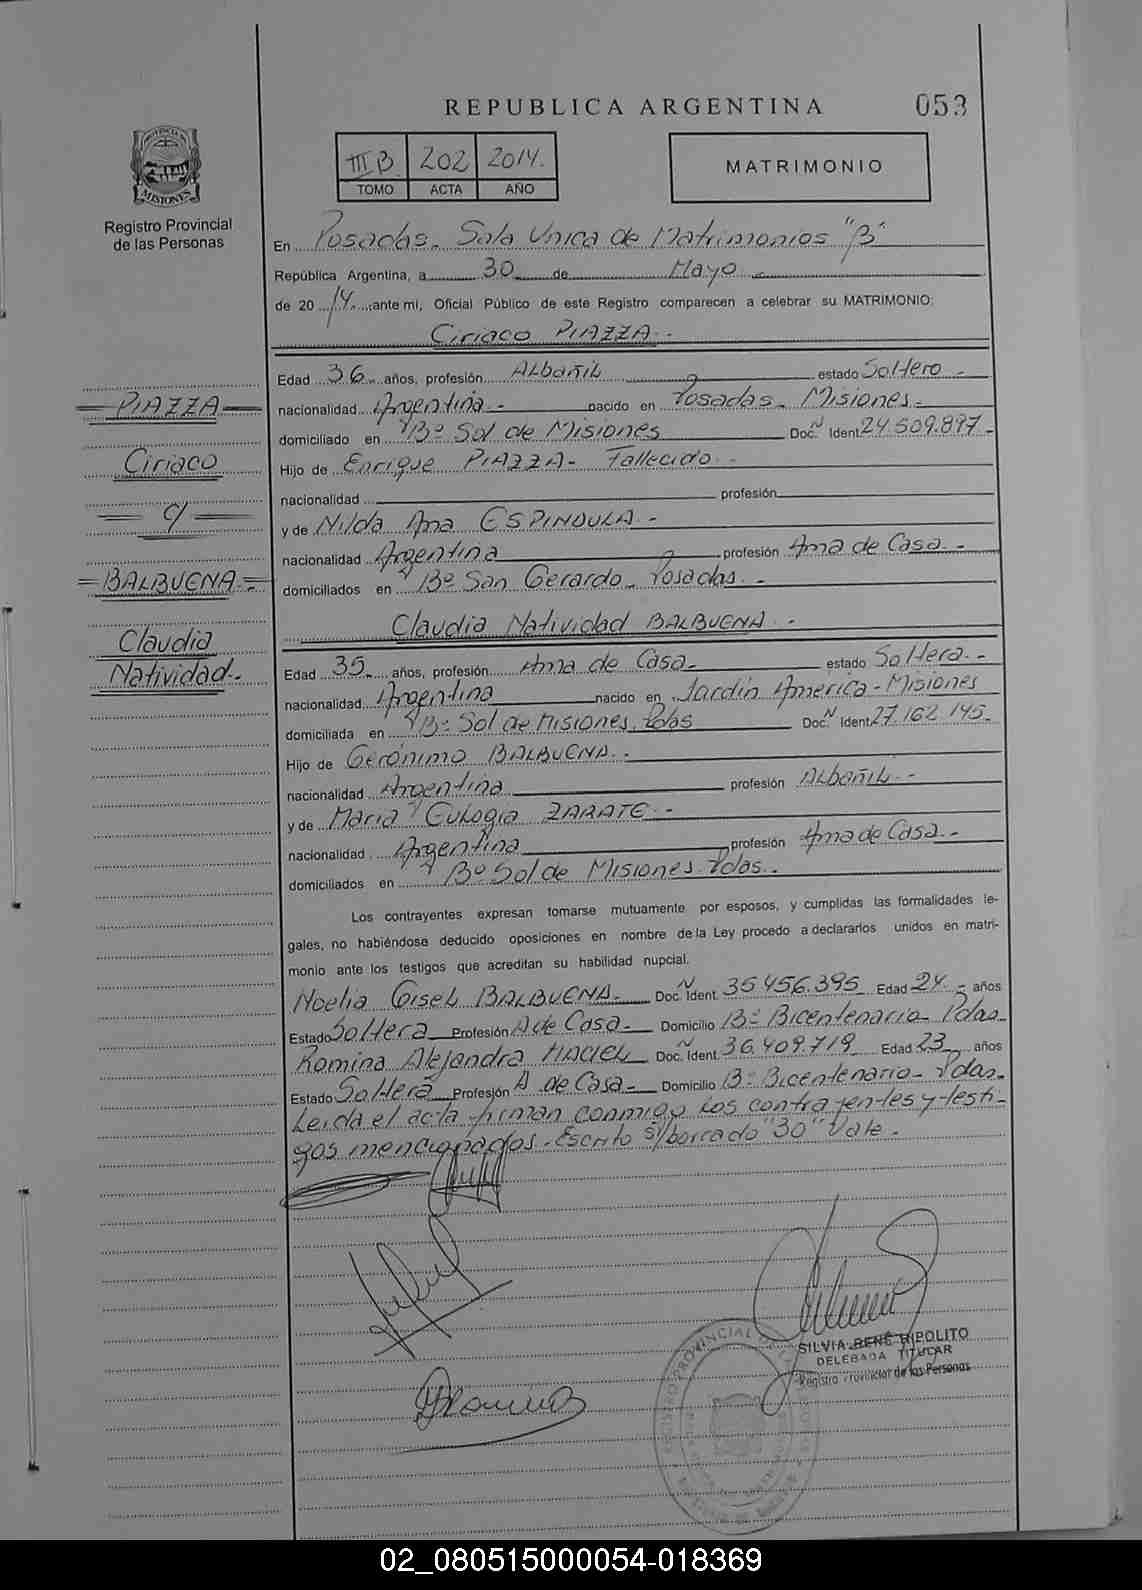 REPUBLICA ARGENTINA
053
PROVINCIA DE
MISIONES
Registro Provincial
de las Personas
III B 202 2014.
TOMO ACTA AÑO
MATRIMONIO
En Posadas. Sala Unica de Matrimonios "B"
República Argentina, a 30 de Mayo
de 20 14. ante mi, Oficial Público de este Registro comparecen a celebrar su MATRIMONIO:
Ciriaco PIAZZA.-
PIAZZA
Ciriaco
c/
BALBUENA.
Claudia
Natividad.-
Edad 36 años, profesión Albañil estado Soltero.-
nacionalidad Argentina.- nacido en Posadas. Misiones.-
domiciliado en Bº Sol de Misiones DocN Ident 24.509.897.-
Hijo de Enrique PIAZZA- Fallecido.-
nacionalidad profesión
y de Nilda Ana ESPINDULA.-
nacionalidad Argentina profesión Ama de Casa.-
domiciliados en Bº San Gerardo. Posadas.-
Claudia Natividad BALBUENA.-
Edad 35 años, profesión Ama de Casa. estado Soltera.-
nacionalidad Argentina nacido en Jardín América - Misiones
domiciliada en Bº Sol de Misiones. Pdas DocN Ident 27.162.145.
Hijo de Gerónimo BALBUENA.-
nacionalidad Argentina profesión Albañil.-
y de Maria Eulogia ZARATE.-
nacionalidad Argentina profesión Ama de Casa.-
domiciliados en Bº Sol de Misiones. Pdas.-
Los contrayentes expresan tomarse mutuamente por esposos, y cumplidas las formalidades le-
gales, no habiéndose deducido oposiciones en nombre de la Ley procedo a declararlos unidos en matri-
monio ante los testigos que acreditan su habilidad nupcial.
Noelia Gisel BALBUENA. DocN Ident. 35.456.395 Edad 24.- años
Estado Soltera Profesión A de Casa. Domicilio Bº Bicentenario. Pdas.
Romina Alejandra MACIEL DocN Ident. 36.409.719 Edad 23 años
Estado Soltera Profesión A de Casa. Domicilio Bº Bicentenario. Pdas.
Leida el acta firman conmigo los contrayentes y testi-
gos mencionados. Escrito s/borrado "30" Vale.
SILVIA RENÉ HIPOLITO
DELEGADA TITULAR
Registro Provincial de las Personas
02_080515000054-018369